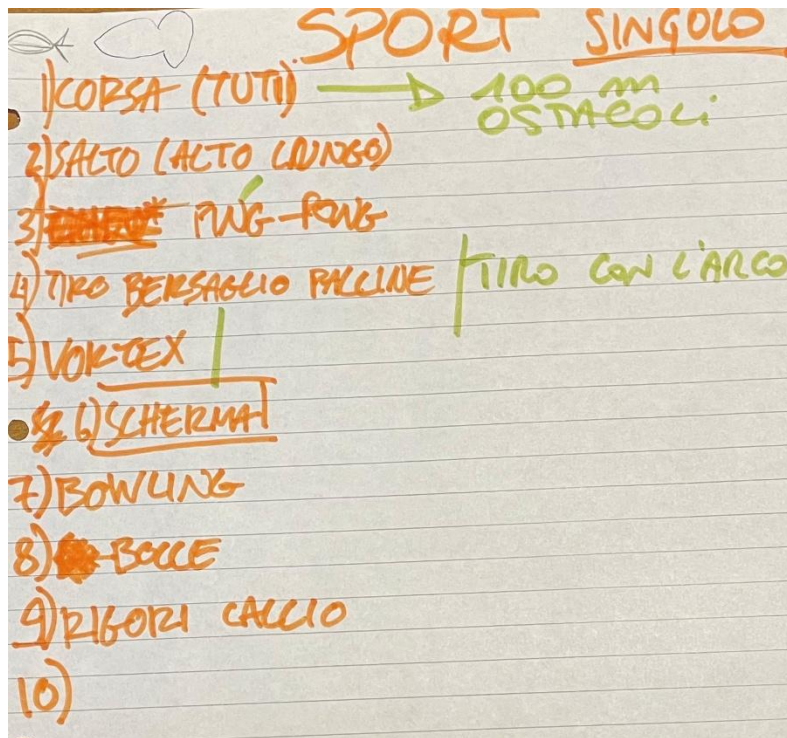 SPORT SINGOLO
1) CORSA (TUTI) → 100 m
OSTACOLI
2) SALTO (ALTO LUNGO)
3) PING-PONG
4) TIRO BERSAGLIO PALLINE | TIRO CON L'ARCO
5) VORTEX |
6) SCHERMA
7) BOWLING
8) BOCCE
9) RIGORI CALCIO
10)